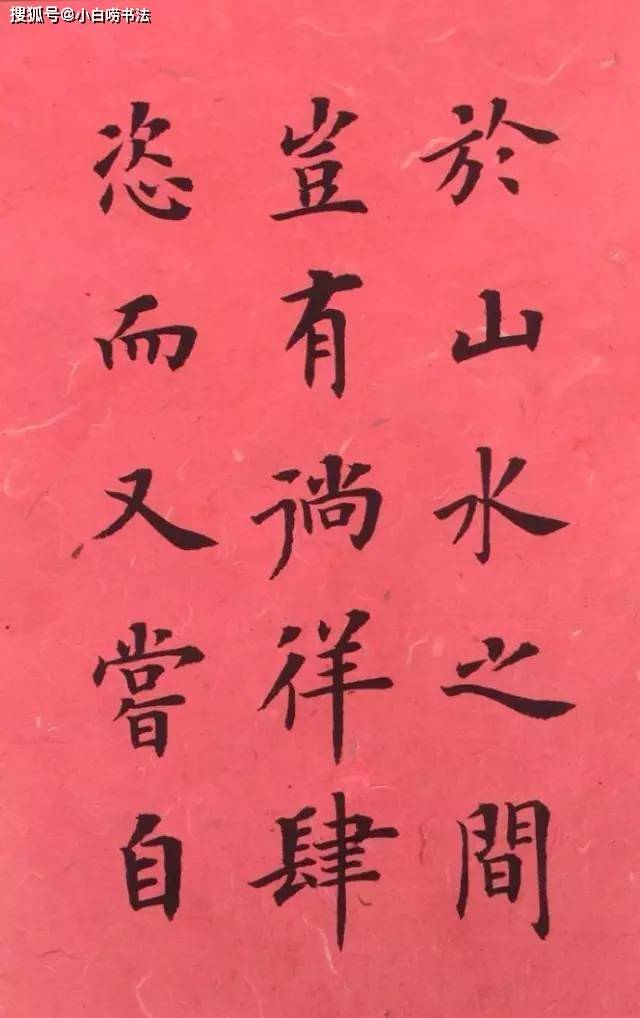 搜狐号@小白唠书法
於山水之間
豈有徜徉肆
恣而又嘗自